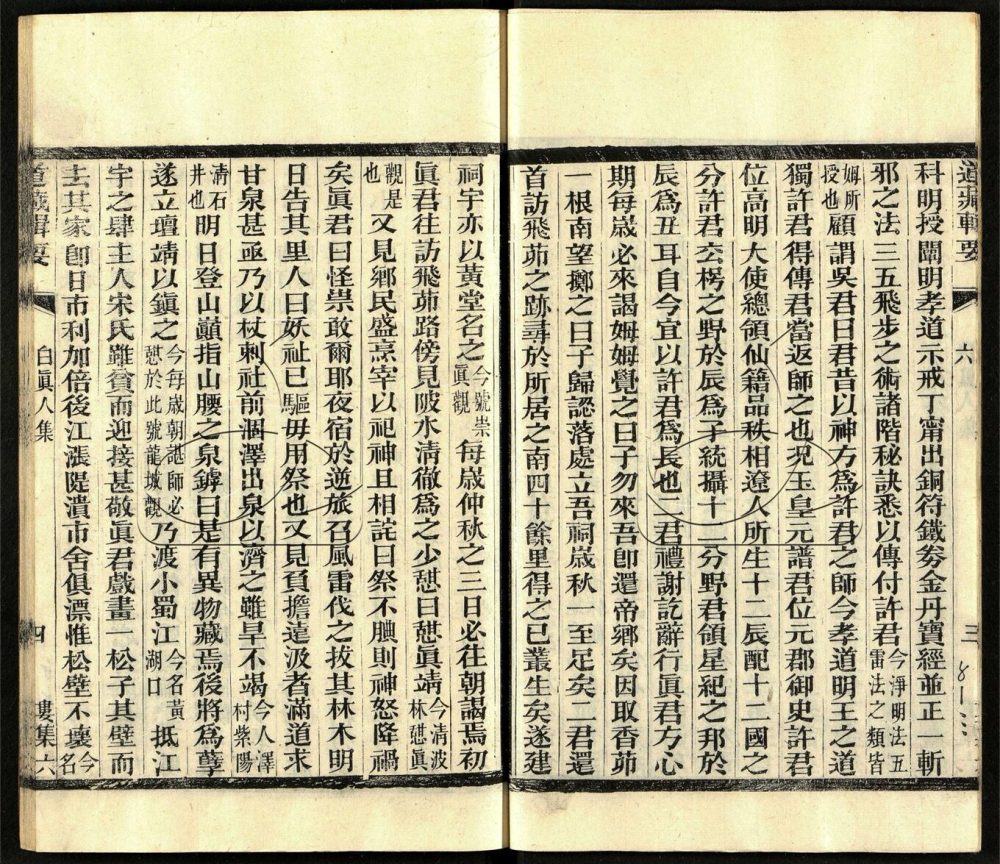 道藏輯要
六
三
科明授闡明孝道示戒丁甯出銅符鐵券金丹寶經並正一斬
邪之法三五飛步之術諸階秘訣悉以傳付許君今淨明法五雷法之類皆
姆所授也顧謂吳君曰君昔以神方爲許君之師今孝道明王之道
獨許君得傳君當返師之也況玉皇元譜君位元郡御史許君
位高明大使總領仙籍品秩相遼人所生十二辰配十二國之
分許君玄枵之野於辰爲子統攝十二分野君領星紀之邦於
辰爲丑耳自今宜以許君爲長也二君禮謝訖辭行眞君方心
期每歲必來謁姆姆覺之曰子勿來吾卽還帝鄉矣因取香茆
一根南望擲之曰子歸認落處立吾祠歲秋一至足矣二君還
首訪飛茆之跡尋於所居之南四十餘里得之已叢生矣遂建
祠宇亦以黃堂名之今號崇眞觀每歲仲秋之三日必往朝謁焉初
眞君往訪飛茆路傍見陂水淸徹爲之少憇曰憇眞靖今淸波林憇眞
觀是也又見鄉民盛烹宰以祀神且相詫曰祭不腆則神怒降禍
矣眞君曰怪祟敢爾耶夜宿於逆旅召風雷伐之拔其林木明
日告其里人曰妖社已驅毋用祭也又見負擔遠汲者滿道求
甘泉甚亟乃以杖刺社前涸澤出泉以濟之雖旱不竭今人澤村紫陽
淸石井也明日登山巔指山腰之泉鏬曰是有異物藏焉後將爲孽
遂立壇靖以鎭之今每歲朝謁師必憇於此號龍城觀乃渡小蜀江今名黃湖口抵江
宇之肆主人宋氏雖貧而迎接甚敬眞君戲畫一松子其壁而
去其家卽日市利加倍後江漲隄潰市舍俱漂惟松壁不壞今名
道藏輯要
白眞人集
四
婁集六